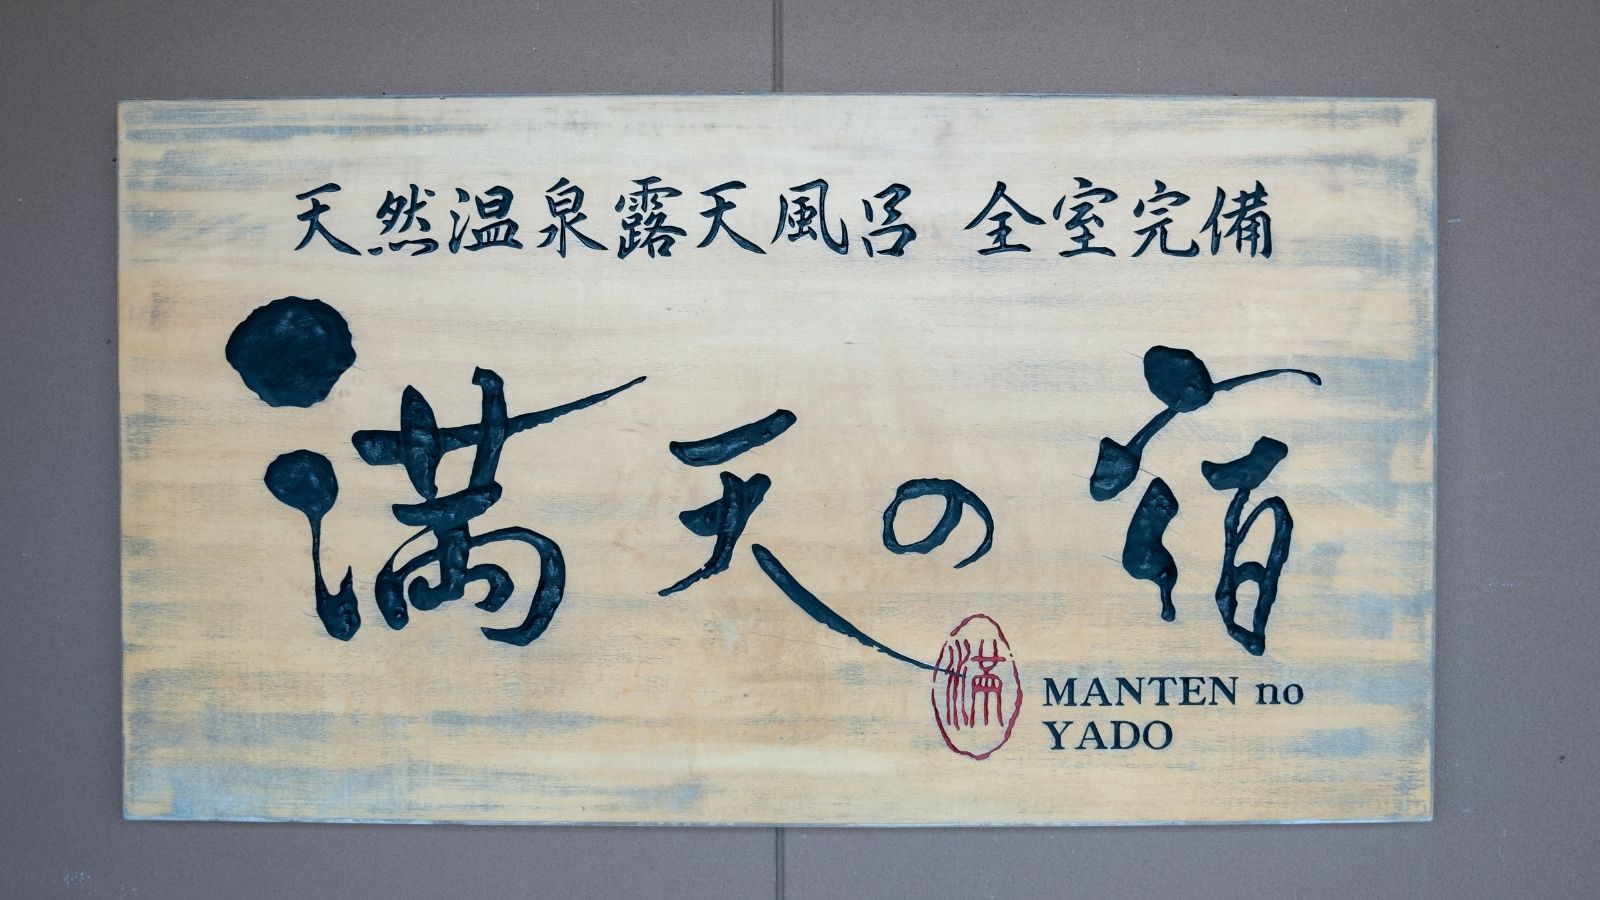 天然温泉露天風呂 全室完備
満天の宿
満
MANTEN no
YADO